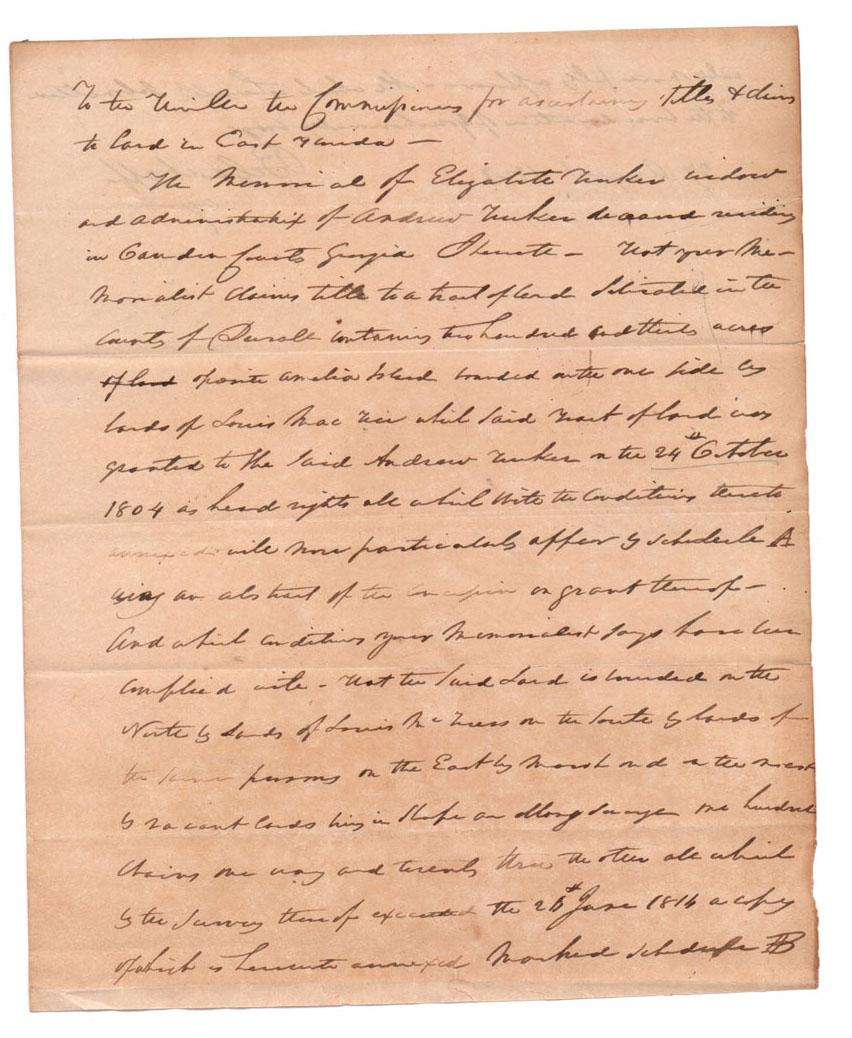 To the Honble the Commissioners for ascertaining titles & claims
to land in East Florida —
The Memorial of Elizabeth Tucker widow
and administratrix of Andrew Tucker deceased residing
in Camden County Georgia Sheweth — That your Me-
morialist claims title to a tract of land Situated in the
County of Duvall containing two hundred and thirty acres
of land oposite Amelia Island bounded on the one Side by
lands of Louis Mac which Said tract of land was
granted to the Said Andrew Tucker on the 24th October
1804 as head rights all which With the Conditions thereto
annexed will more particularly appear by Schedule A
being an abstract of the Concession or grant thereof —
And which conditions your Memorialist Says have been
complied with – That the Said Land is bounded on the
North by Lands of Louis Mc on the South by lands of
the Same persons on the East by Marsh and on the west
by vacant lands being in Shape an oblong Square one hundred
chains one way and twenty three the other all which
by the Survey thereof executed the June 1816 a copy
of which is hereunto annexed Marked Schedule B